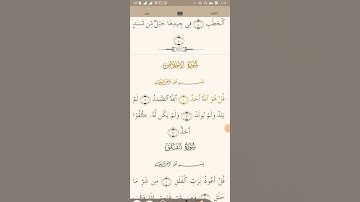 ٱلۡحَطَبِ ۝ فِي جِيدِهَا حَبۡلٞ مِّن مَّسَدِۭ
۝
سُورَةُ الإِخۡلَاصِ
بِسۡمِ ٱللَّهِ ٱلرَّحۡمَٰنِ ٱلرَّحِيمِ
قُلۡ هُوَ ٱللَّهُ أَحَدٌ ۝ ٱللَّهُ ٱلصَّمَدُ ۝ لَمۡ
يَلِدۡ وَلَمۡ يُولَدۡ ۝ وَلَمۡ يَكُن لَّهُۥ كُفُوًا
أَحَدُۢ ۝
سُورَةُ الفَلَقِ
بِسۡمِ ٱللَّهِ ٱلرَّحۡمَٰنِ ٱلرَّحِيمِ
قُلۡ أَعُوذُ بِرَبِّ ٱلۡفَلَقِ ۝ مِن شَرِّ مَا
خَلَقَ ۝